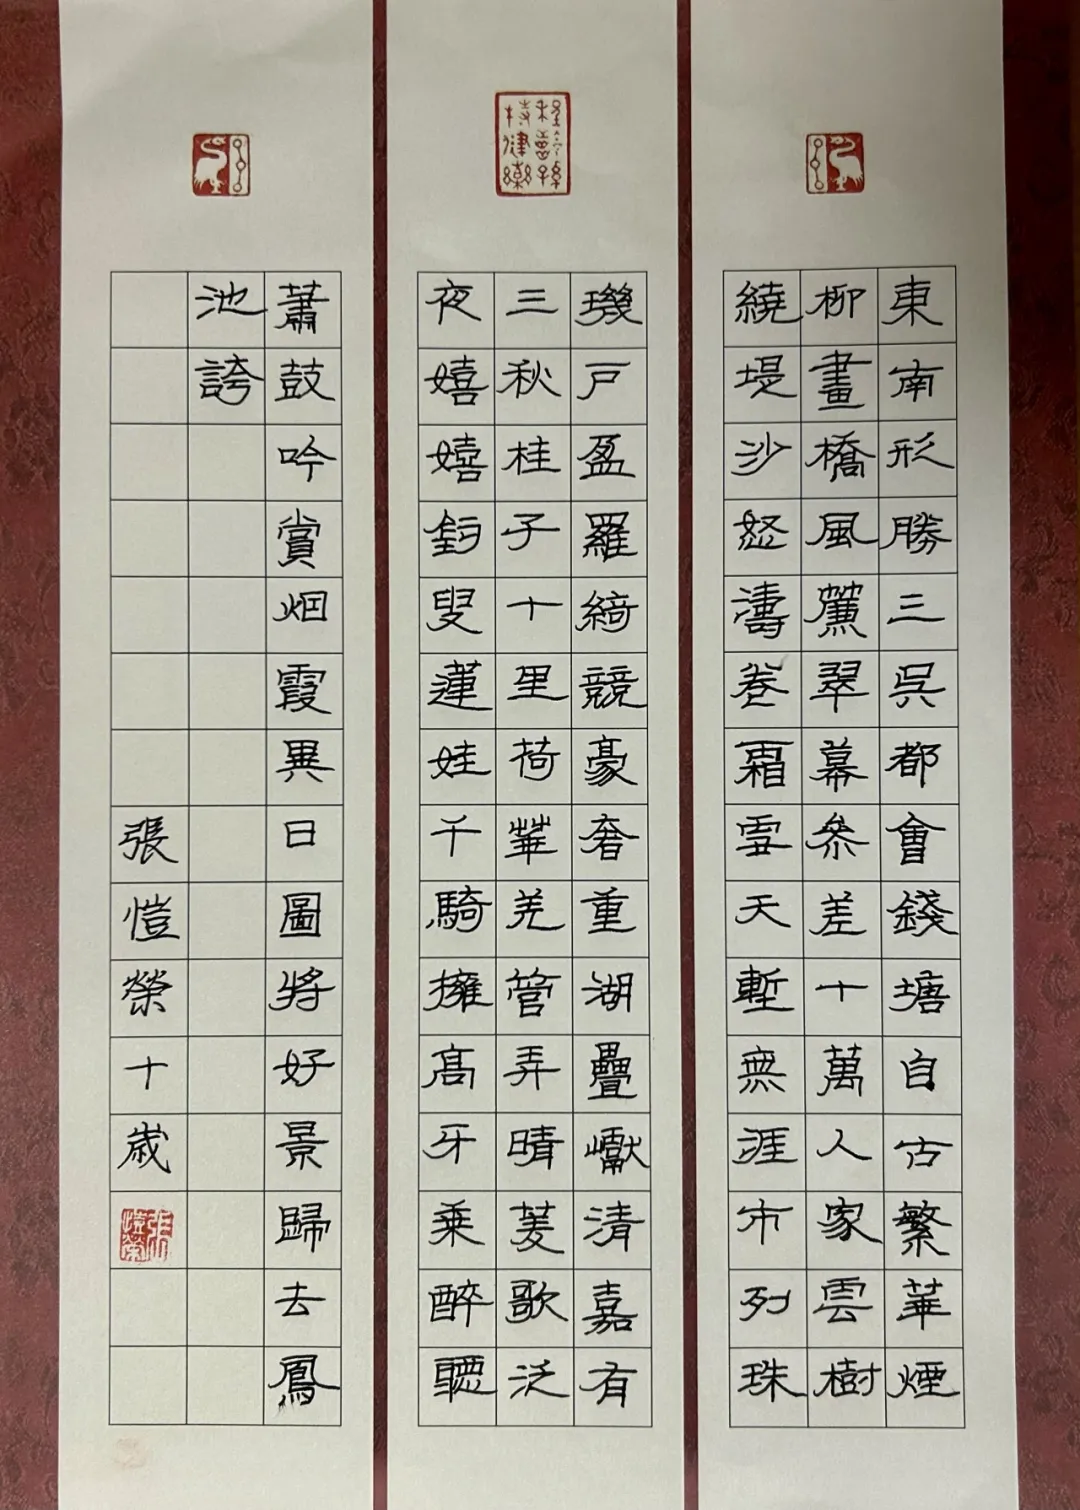 東南形勝三吳都會錢塘自古繁華煙
柳畫橋風簾翠幕參差十萬人家雲樹
繞堤沙怒濤卷霜雪天塹無涯市列珠
璣戶盈羅綺競豪奢重湖疊巘清嘉有
三秋桂子十里荷華羌管弄晴菱歌泛
夜嬉嬉釣叟蓮娃千騎擁高牙乘醉聽
蕭鼓吟賞烟霞異日圖將好景歸去鳳
池誇
張愷榮十歲
張愷榮